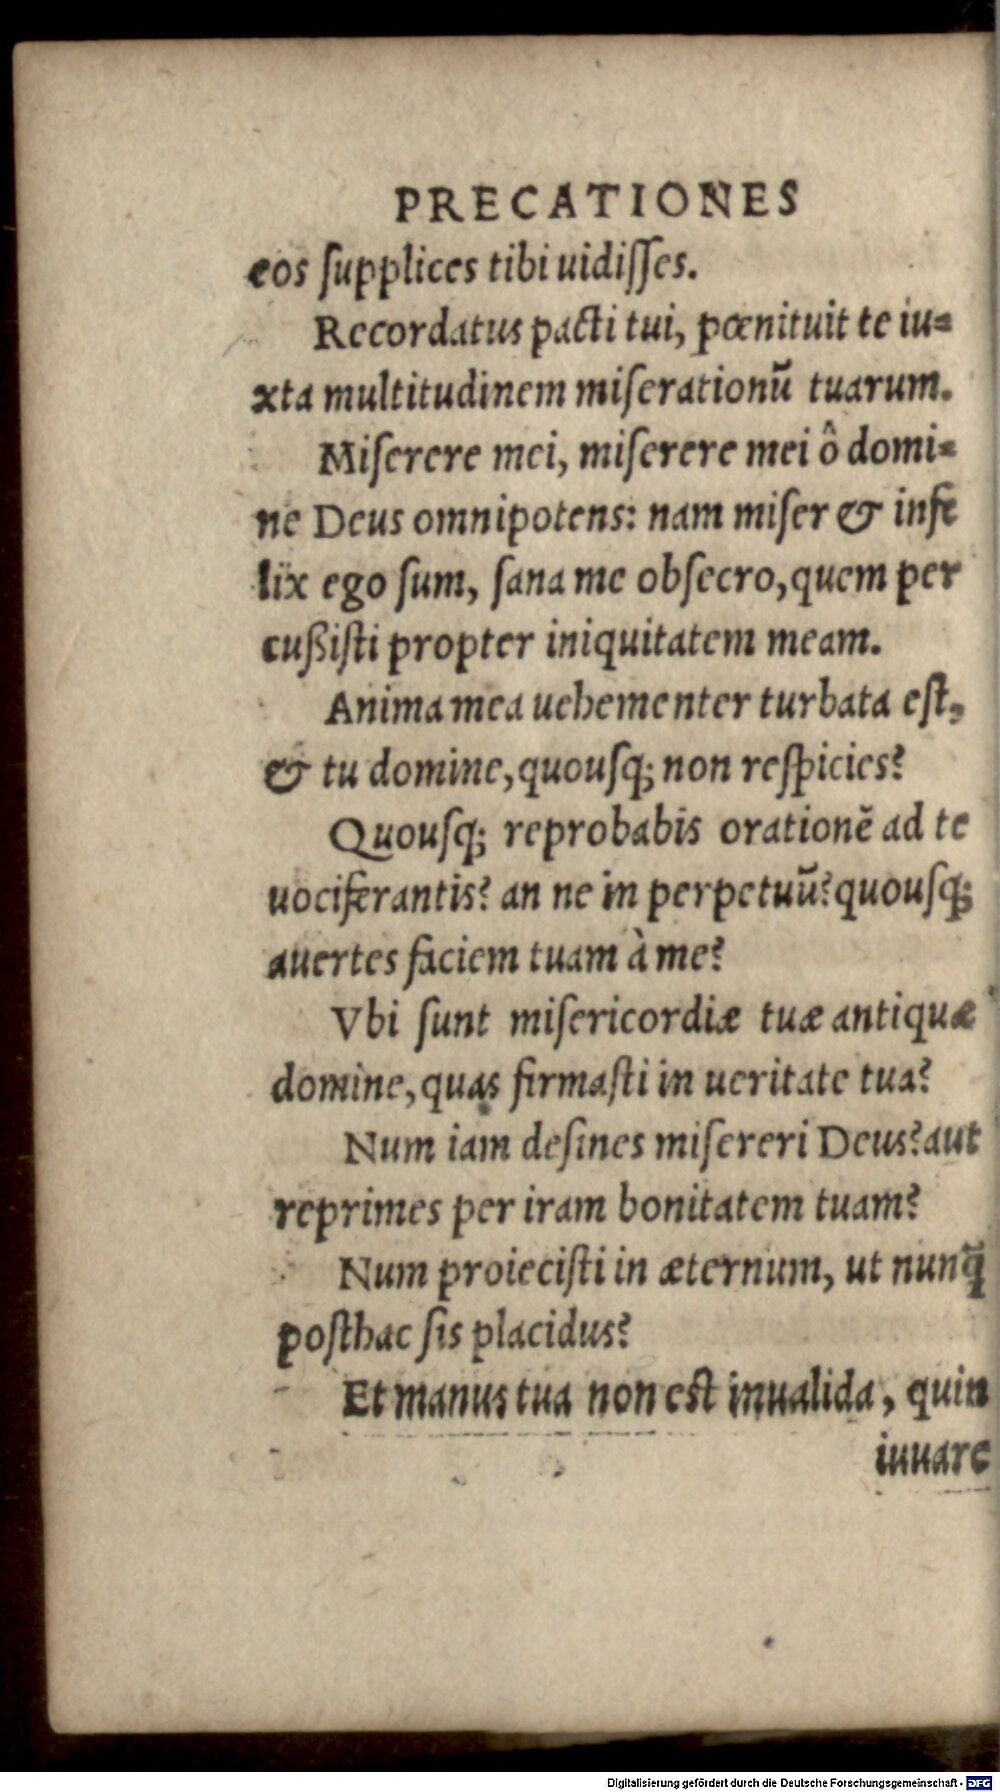 PRECATIONES
eos ſupplices tibi uidiſſes.
Recordatus pacti tui, pœnituit te iu=
xta multitudinem miſerationũ tuarum.
Miſerere mei, miſerere mei ô domi=
ne Deus omnipotens: nam miſer & infe
lix ego ſum, ſana me obſecro, quem per
cußiſti propter iniquitatem meam.
Anima mea uehementer turbata eſt,
& tu domine, quouſq; non reſpicies?
Quouſq; reprobabis orationẽ ad te
uociferantis? an ne in perpetuũ? quouſq;
auertes faciem tuam à me?
Vbi ſunt miſericordiæ tuæ antiquæ
domine, quas firmaſti in ueritate tua?
Num iam deſines miſereri Deus? aut
reprimes per iram bonitatem tuam?
Num proieciſti in æternum, ut nunq̃
poſthac ſis placidus?
Et manus tua non eſt inualida, quin
iuuare
Digitalisierung gefördert durch die Deutsche Forschungsgemeinschaft - DFG